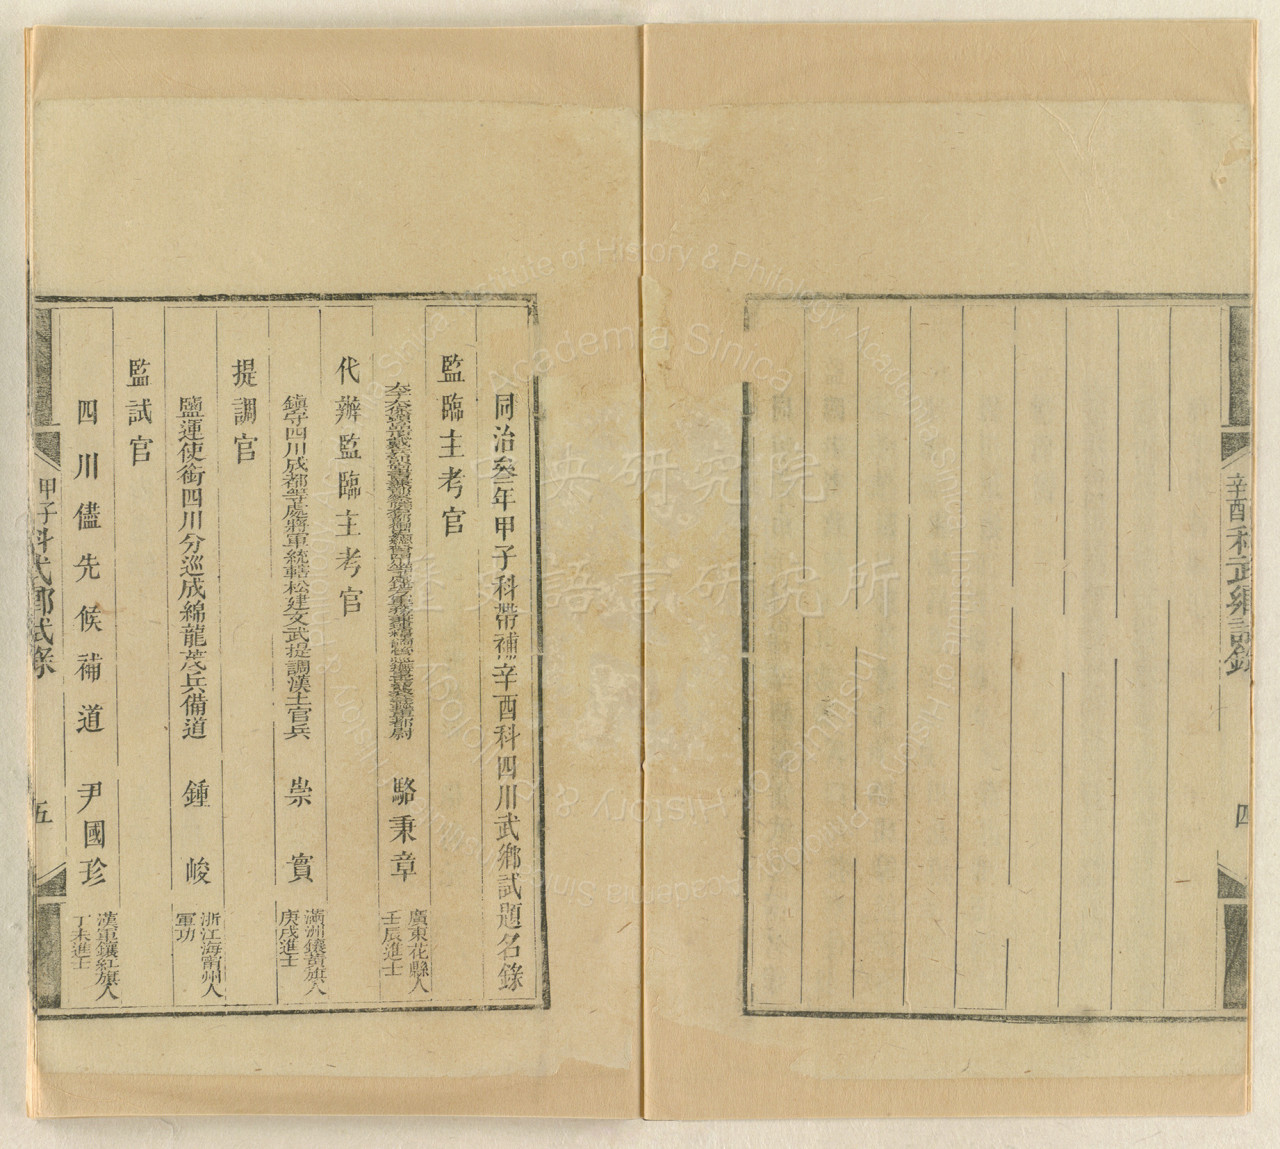 辛酉科武鄉試錄
四
同治叁年甲子科帶補辛酉科四川武鄉試題名錄
監臨主考官
駱秉章
廣東花縣人
壬辰進士
代辦監臨主考官
鎮守四川成都等處將軍統轄松建文武提調漢土官兵
崇實
滿洲鑲黃旗人
庚戌進士
提調官
鹽運使銜四川分巡成綿龍茂兵備道
鍾峻
浙江海甯州人
軍功
監試官
四川儘先候補道
尹國珍
漢軍鑲紅旗人
丁未進士
甲子科武鄉試錄
五
中央研究院
歷史語言研究所
Institute of History & Philology, Academia Sinica